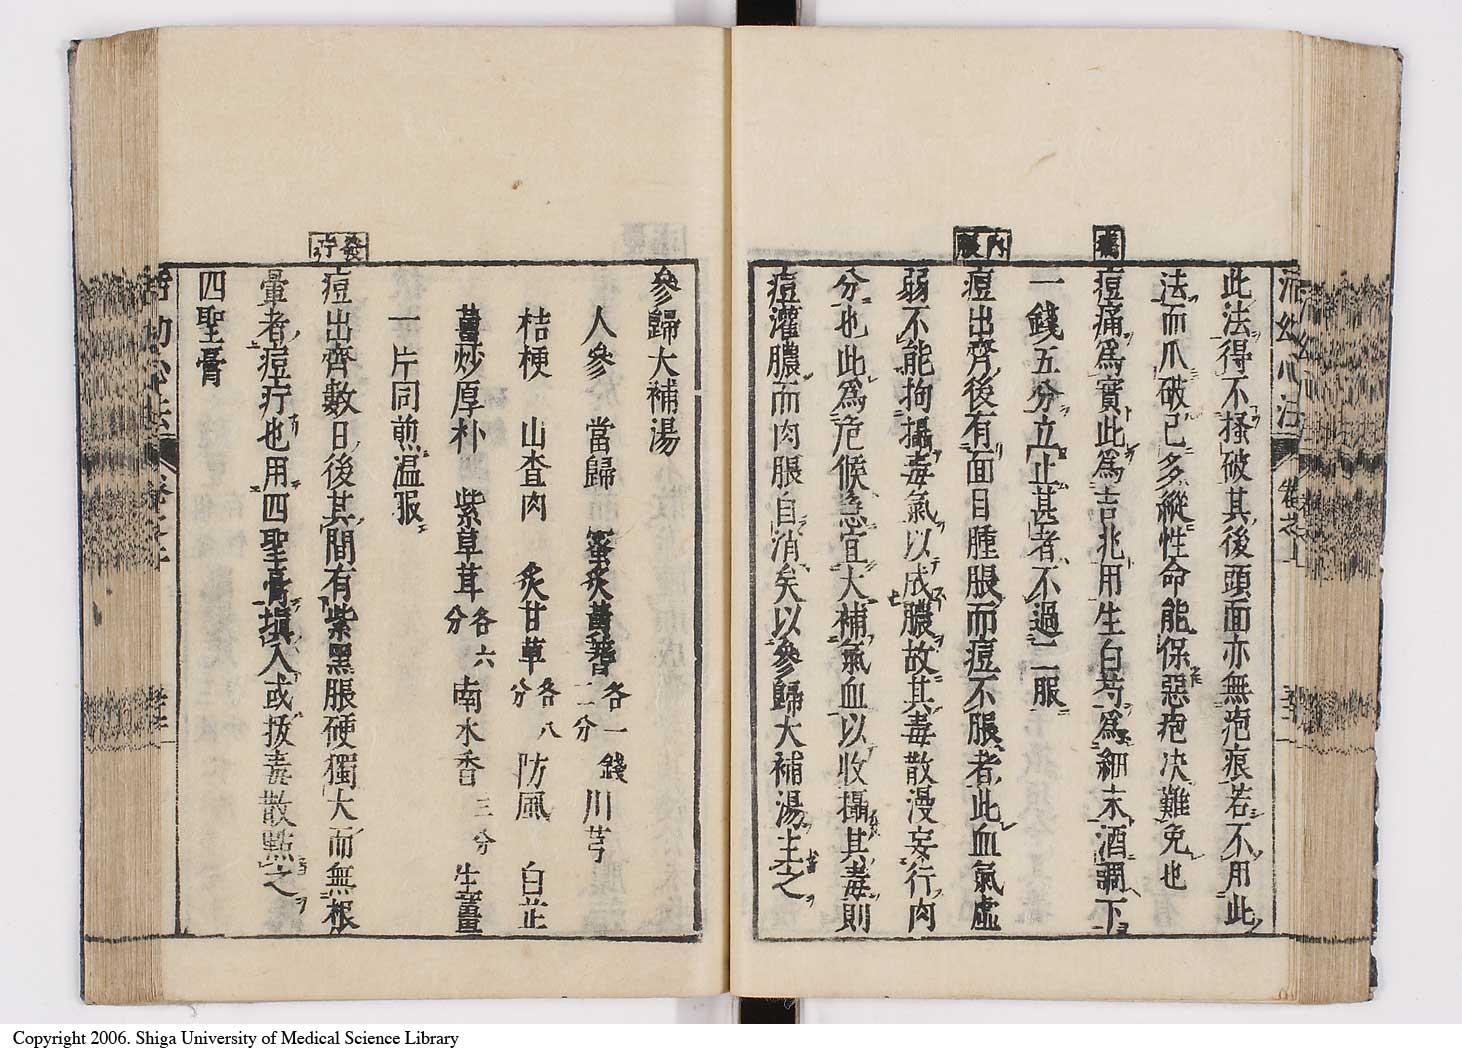 此法得不搔破其後頭面亦無疤痕若不用此
法而爪破已多縱性命能保惡疤决難免也
痘痛爲實此爲吉兆用生白芍爲細末酒調下
一錢五分立止甚者不過二服
內脹
痘出齊後有面目腫脹而痘不脹者此血氣虛
弱不能拘攝毒氣以成膿故其毒散漫妄行肉
分也此爲危候急宜大補氣血以收攝其毒則
痘灌膿而肉脹自消矣以參歸大補湯主之
參歸大補湯
人參 當歸 蜜炙黃耆各一錢二分 川芎
桔梗 山查肉 炙甘草各八分 防風 白芷
薑炒厚朴 紫草茸各六分 南木香三分 生薑
一片同煎温服
發疔
痘出齊數日後其間有紫黑脹硬獨大而無根
暈者痘疔也用四聖膏填入或拔毒散點之
四聖膏
Copyright 2006. Shiga University of Medical Science Library